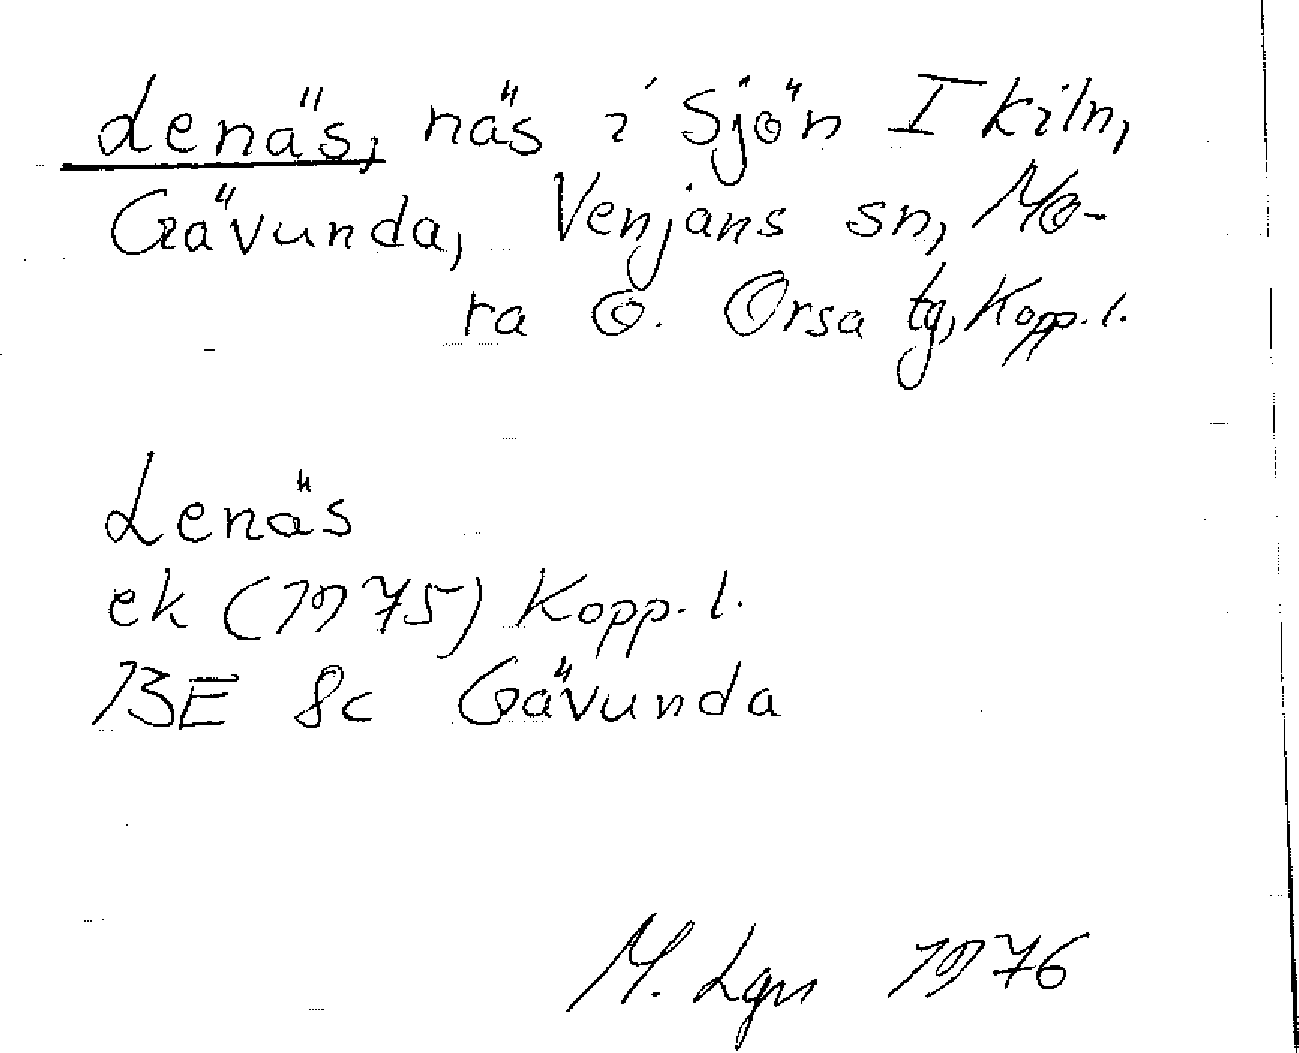 Lenäs, näs i Sjön I kiln,
Gävunda, Venjans sn, Mo-
ra o. Orsa tg, Kopp. l.
Lenäs
ek (1975) Kopp. l.
13E 8c Gävunda
M. Lgn 1976